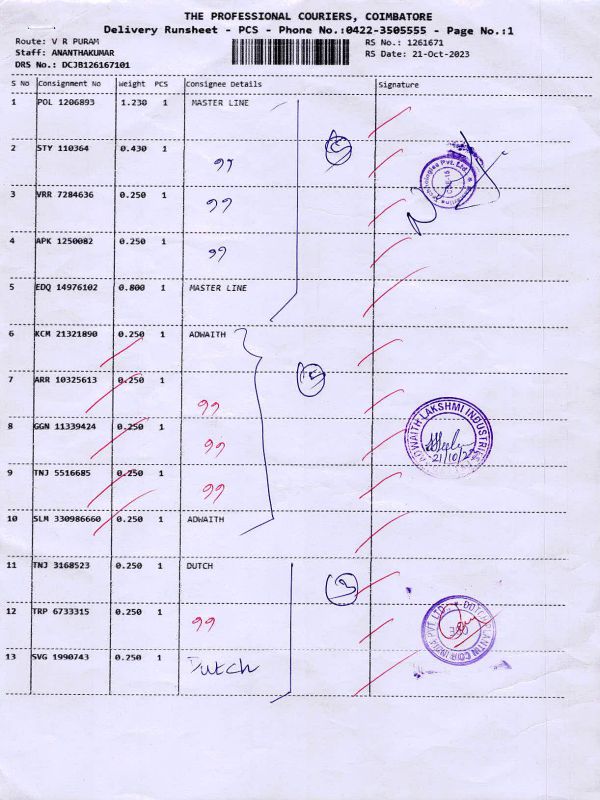 THE PROFESSIONAL COURIERS, COIMBATORE
Delivery Runsheet - PCS - Phone No.:0422-3505555 - Page No.:1
Route: V R PURAM
RS No.: 1261671
Staff: ANANTHAKUMAR
RS Date: 21-Oct-2023
DRS No.: DCJB126167101
S No Consignment No Weight PCS Consignee Details Signature
1 POL 1206893 1.230 1 MASTER LINE
2 STY 110364 0.430 1 ,,
3 VRR 7284636 0.250 1 ,,
4 APK 1250082 0.250 1 ,,
5 EDQ 14976102 0.800 1 MASTER LINE
5
6 KCM 21321890 0.250 1 ADWAITH
7 ARR 10325613 0.250 1 ,,
8 GGN 11339424 0.250 1 ,,
9 TNJ 5516685 0.250 1 ,,
10 SLM 330986660 0.250 1 ADWAITH
5
ADWAITH LAKSHMI INDUSTRIES
21/10/23
11 TNJ 3168523 0.250 1 DUTCH
12 TRP 6733315 0.250 1 ,,
13 SVG 1990743 0.250 1 Dutch
3